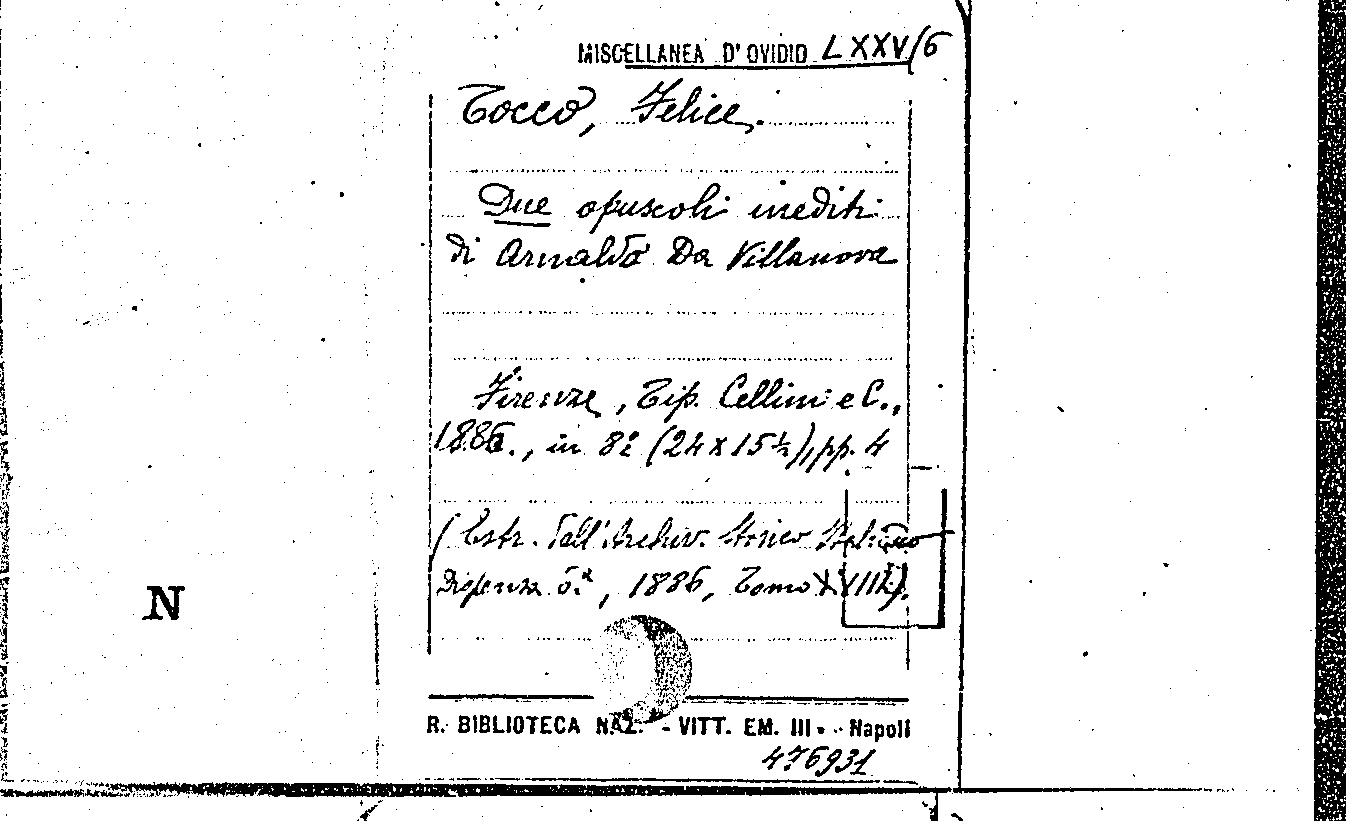 MISCELLANEA D'OVIDIO LXXV/6
Tocco, Felice.
Due opuscoli inediti
di Arnaldo Da Villanova
Firenze, Tip. Cellini e C.,
1886., in 8º (24 x 15 ½), pp. 4
(Estr. dall'Archiv. Storico Italiano
Dispensa 6ª, 1886, Tomo XVIII).
N
R. BIBLIOTECA NAZ. - VITT. EM. III - Napoli
476931